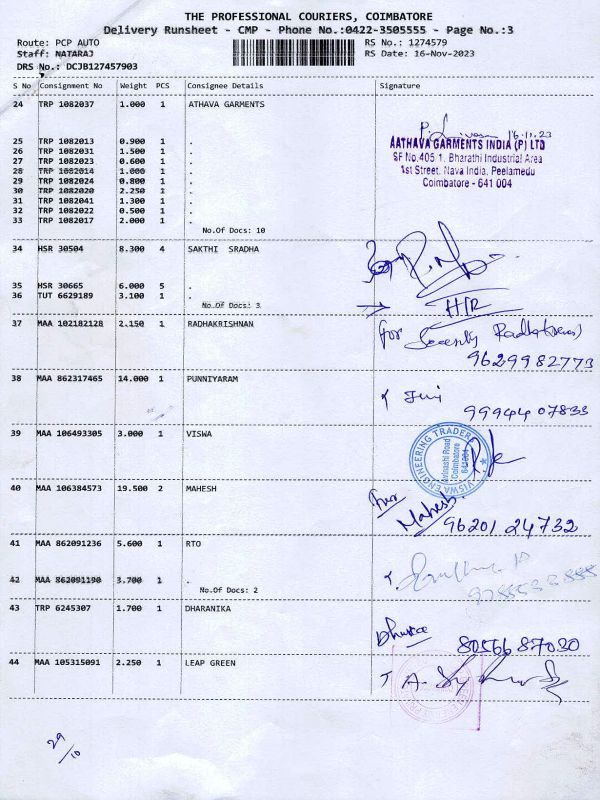 THE PROFESSIONAL COURIERS, COIMBATORE
Delivery Runsheet - CMP - Phone No.:0422-3505555 - Page No.:3
Route: PCP AUTO RS No.: 1274579
Staff: NATARAJ RS Date: 16-Nov-2023
DRS No.: DCJB127457903
S No Consignment No Weight PCS Consignee Details Signature
24 TRP 1082037 1.000 1 ATHAVA GARMENTS
16.11.23
AATHAVA GARMENTS INDIA (P) LTD
SF No.405 1, Bharathi Industrial Area
1st Street, Nava India, Peelamedu
Coimbatore - 641 004
25 TRP 1082013 0.900 1 .
26 TRP 1082031 1.500 1 .
27 TRP 1082023 0.600 1 .
28 TRP 1082014 1.000 1 .
29 TRP 1082024 0.800 1 .
30 TRP 1082020 2.250 1 .
31 TRP 1082041 1.300 1 .
32 TRP 1082022 0.500 1 .
33 TRP 1082017 2.000 1 .
No.Of Docs: 10
34 HSR 30504 8.300 4 SAKTHI SRADHA
35 HSR 30665 6.000 5 .
36 TUT 6629189 3.100 1 .
No.Of Docs: 3
HR
37 MAA 102182128 2.150 1 RADHAKRISHNAN
for
9629982773
38 MAA 862317465 14.000 1 PUNNIYARAM
9994407833
39 MAA 106493305 3.000 1 VISWA
VISWA ENGINEERING TRADERS
Avinashi Road
Coimbatore
641004
40 MAA 106384573 19.500 2 MAHESH
for
Mahesh
96201 24732
41 MAA 862091236 5.600 1 RTO
42 MAA 862091190 3.700 1 .
No.Of Docs: 2
43 TRP 6245307 1.700 1 DHARANIKA
8056687030
44 MAA 105315091 2.250 1 LEAP GREEN
29/10